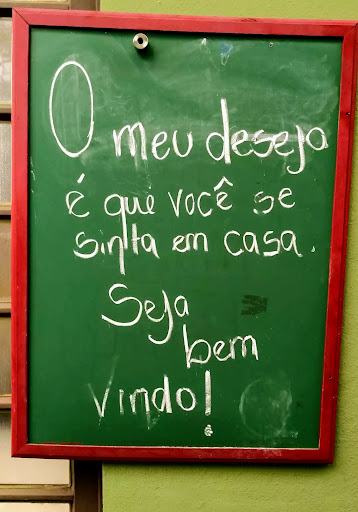 O meu desejo
é que você se
sinta em casa.
Seja
bem
vindo!